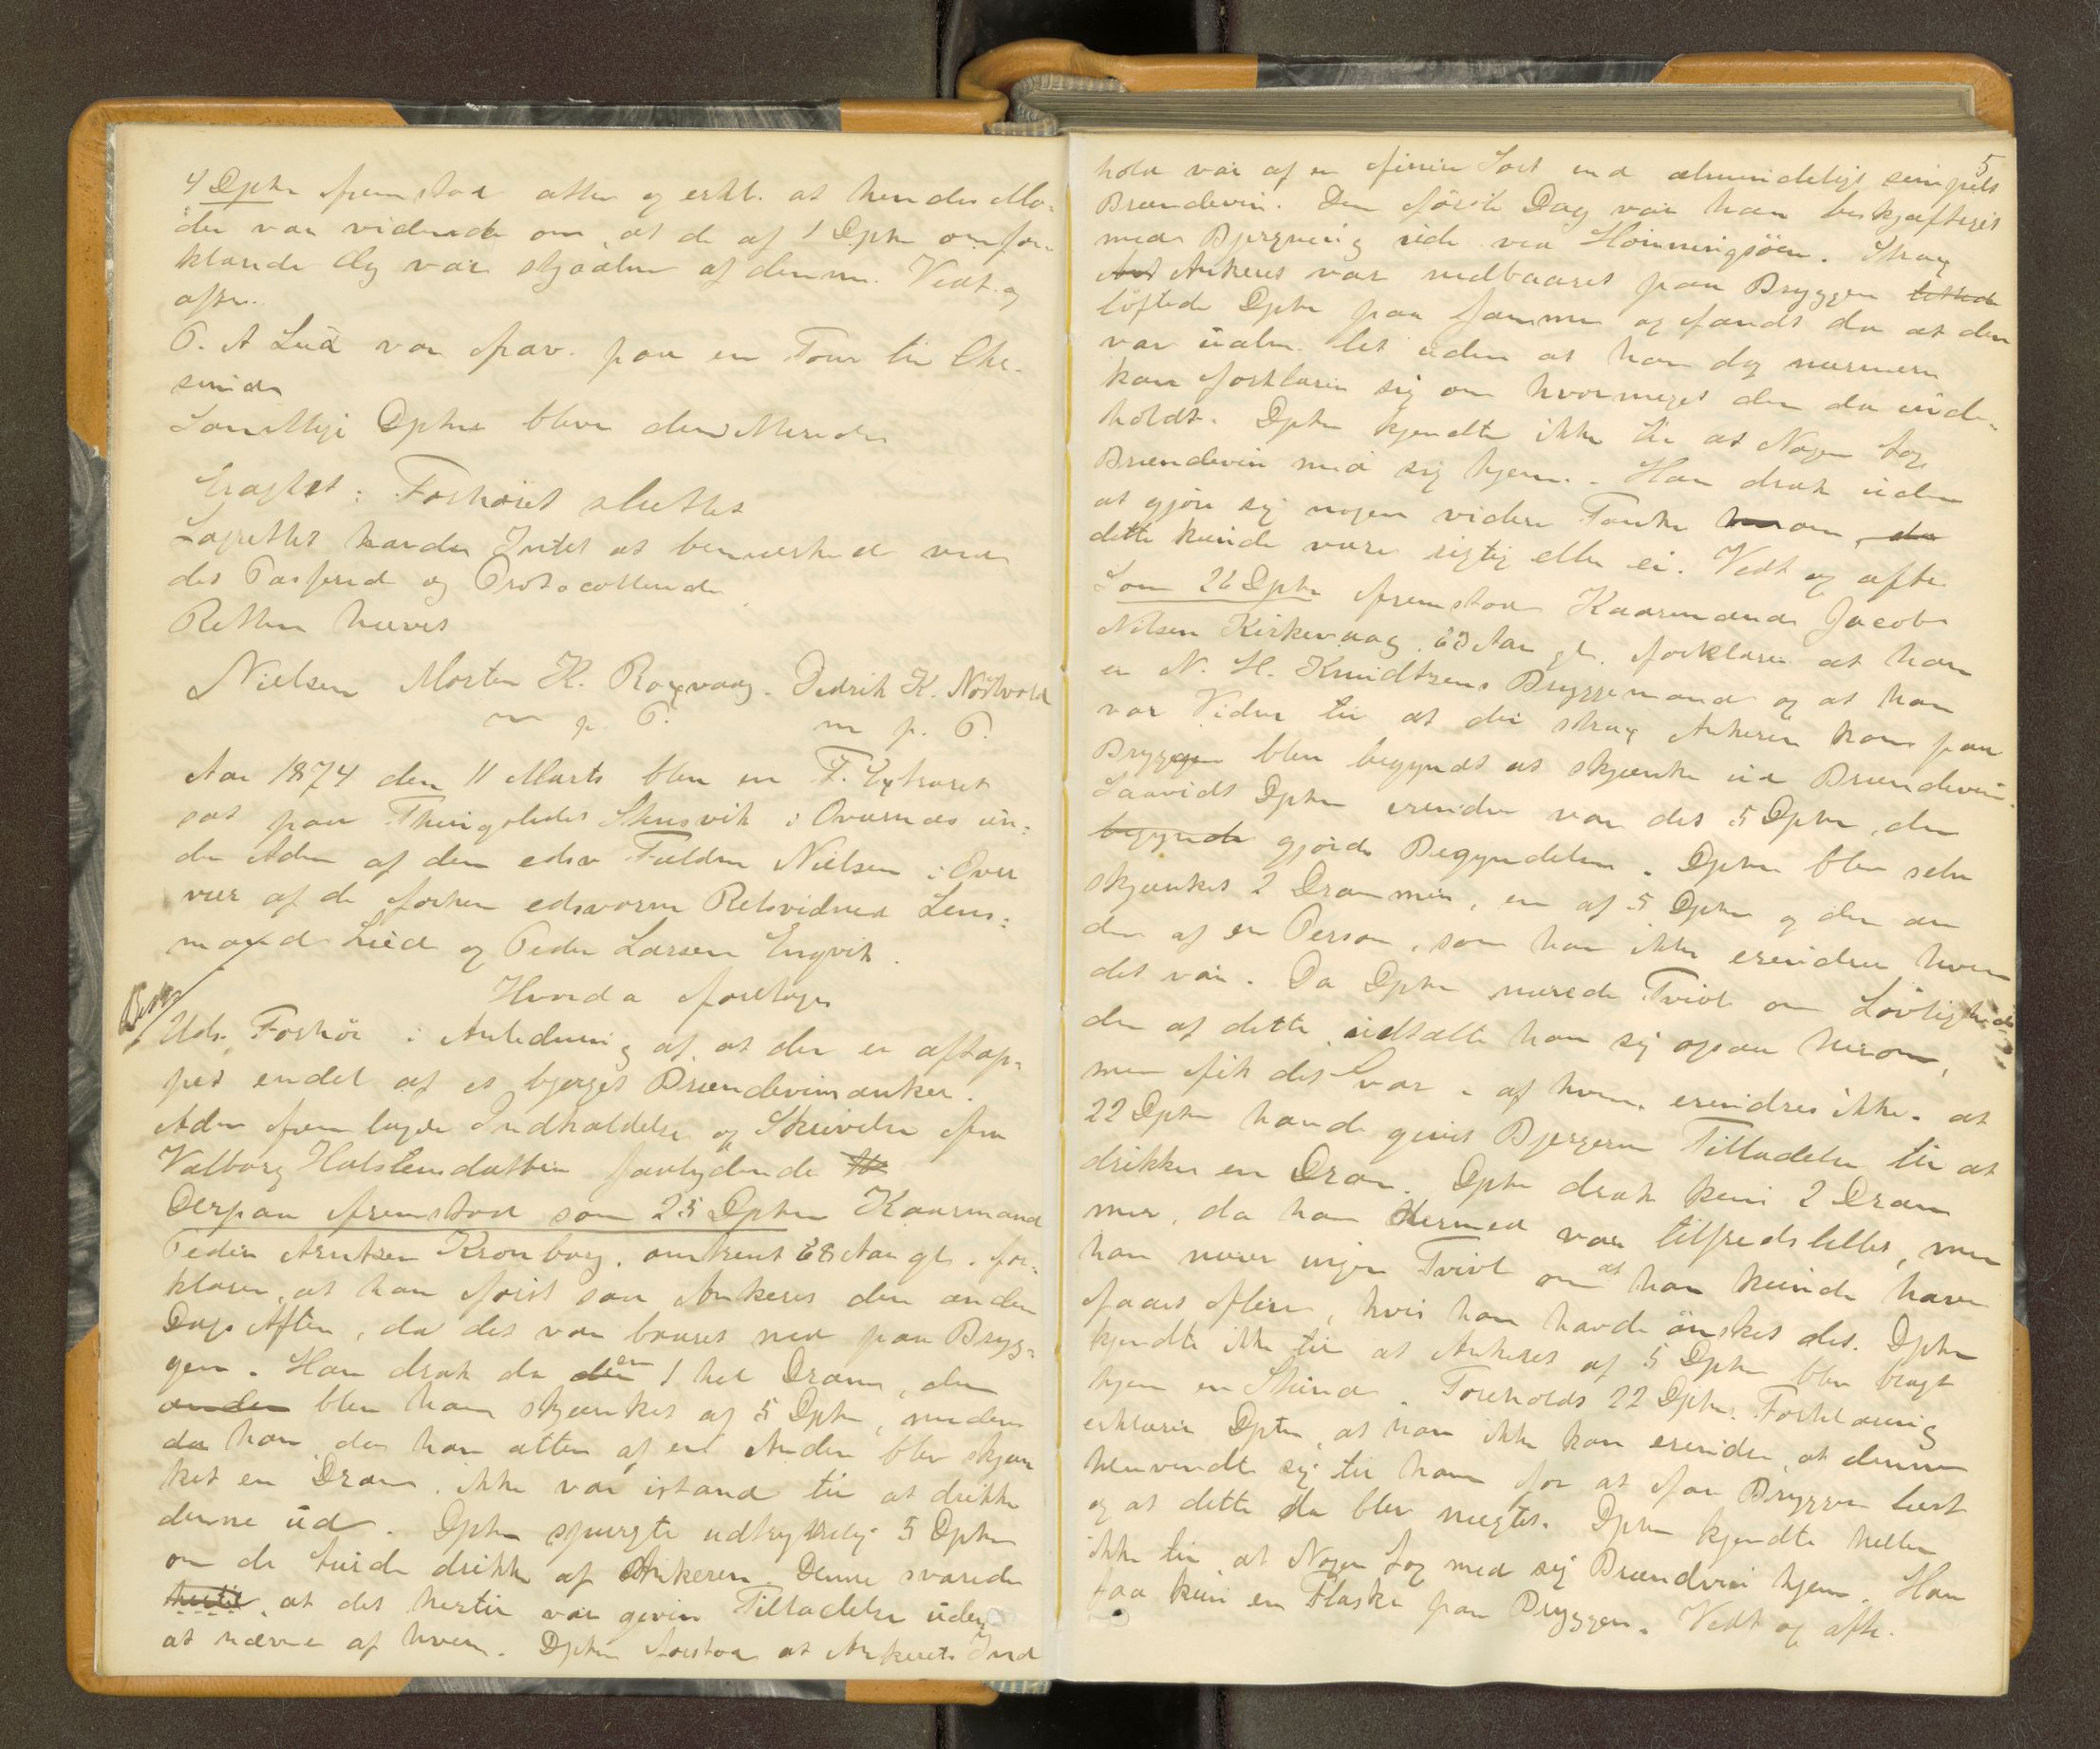 4 Dptn fremstod atter og erkl. at hendes Mo-
der var vidende om, at de af 1 Dptn omfor-
klarede Æg var stjaalne af denne. Vedt. og
aftr.
P. A Lied var frav. paa en Tour til Chr.
sund
Samtlige Dptr bleve demitterede
Eragtet: Forhøret sluttet
Lagrettet havde Intet at bemærke ved
det Passerede og Protocollerede
Retten hævet
Nielsen Morten K. Roxvaag. Didrik K. Nordvold
m p. P. m p. P.
Aar 1874 den 11 Marts blev en P. Extraret
sat paa Thingstedet Stensvik i Overnæs un-
der Adm af den edsv Fuldm Nielsen i Over
vær af de forhen edsvorne Retsvidner Lens-
mand Lied og Peder Larsen Engvik.
Hvorda foretoges
Uds. Forhør i Anledning af, at der er aftap-
pet endel af et bjerget Brændevinsanker.
Adm fremlagde Indkaldelse og Skrivelse fra
Valborg Halstensdatter saalydende
Derpaa fremstod som 25 Dptn Kaarmand
Peder Arntsen Kronborg, omtrent 68 Aar gl. for-
klarer, at han først saa Ankeret den anden
Dags Aften, da det var baaret ned paa Bryg-
gen. Han drak da den en 1 hel Dram, den
anden blev ham skjænket af 5 Dptn, medens
da han, da han atter af en Anden blev skjæn
ket en Dram, ikke var istand til at drikke
denne ud. Dptn spurgte udtrykkelig 5 Dptn
om de turde drikke af Ankeren. Denne svarede
hertil, at det hertil var given Tilladelse uden
at nævne af hvem. Dptn forstod at Ankerets Ind
5
hold var af en finere Sort end almindeligt simpelt
Brændevin. Den første Dag var han beskjæftiget
med Bjergning ude ved Honningsøen. Strax
Ankeret var nedbaaret paa Bryggen lettede
løftede Dptn paa samme og fandt da at den
var ualm. let uden at han dog nærmere
kan forklare sig om hvormeget den da inde-
holdt. Dptn kjendte ikke til at Nogen tog
Brændevin med sig hjem. Han drak uden
at gjøre sig nogen videre Tanke om, da
dette kunde være rigtig eller ei. Vedt og aftr.
Som 26 Dptn fremstod Kaarmand Jacob
Nilsen Kirkevaag, 63 Aar gl. forklarer at han
er N. H. Knudtzens Bryggemand og at han
var Vidne til at der strax Ankeren kom paa
Bryggen blev begyndt at skjænke ud Brændevin.
Saavidt Dptn erindrer var det 5 Dptn, der
begyndte gjorde Begyndelsen. Dptn blev selv
skjænket 2 Drammer, en af 5 Dptn og den an
den af en Person, som han ikke erindrer hvem
det var. Da Dptn nærede Tvivl om Lovlighe-
den af dette, udtalte han sig ogsaa herom,
men fik det Svar - af hvem, erindres ikke - at
22 Dptn havde givet Bjergerne Tilladelse til at
drikke en Dram. Dptn drak kun 2 Dram
mer, da han hermed var tilfredsstillet, men
han nærer ingen Tvivl om at han kunde have
faaet flere, hvis han havde ønsket det. Dptn
kjendte ikke til at Ankeret af 5 Dptn blev bragt
hjem en Stund. Foreholdt 22 Dptns Forklaring
erklærer Dptn, at han ikke kan erindre, at denne
henvendte sig til ham for at faa Bryggen læst
og at dette da blev nægtet. Dptn kjendte heller
ikke til, at Nogen tog med sig Brændevin hjem. Han
saa kun en Flaske paa Bryggen. Vedt og aftr.